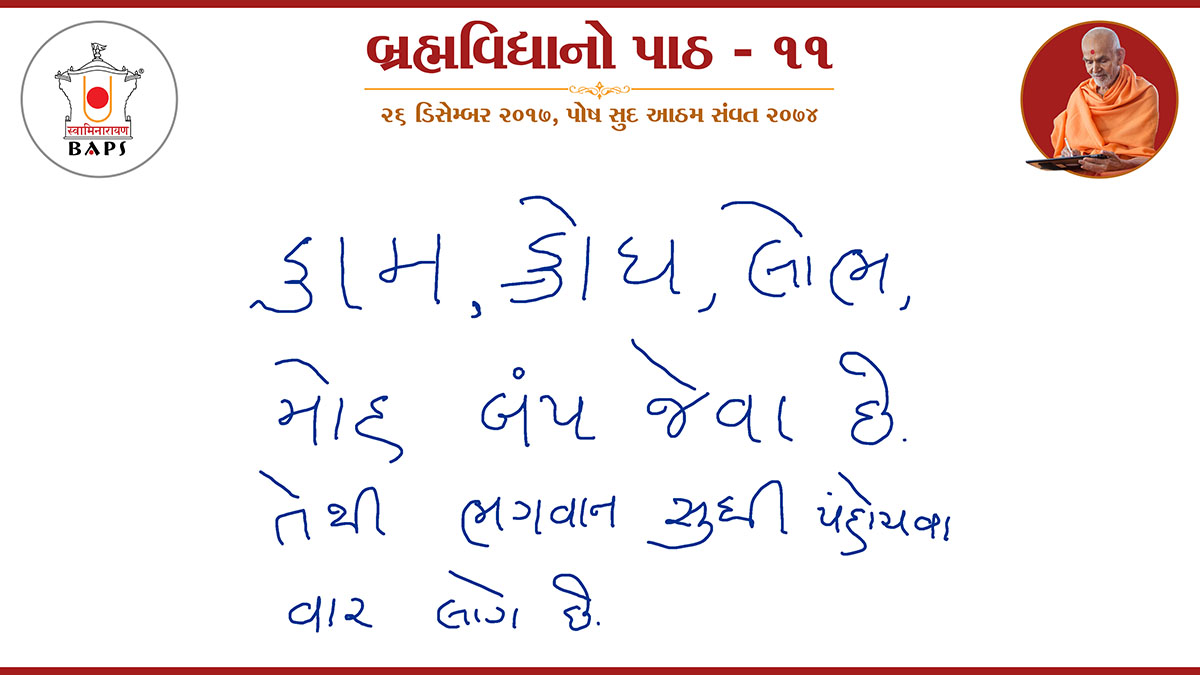 બ્રહ્મવિદ્યાનો પાઠ - ૧૧
૨૬ ડિસેમ્બર ૨૦૧૭, પોષ સુદ આઠમ સંવત ૨૦૭૪
स्वामिनारायण
BAPS
કામ, ક્રોધ, લોભ,
મોહ બંપ જેવા છે.
તેથી ભગવાન સુધી પંહોચવા
વાર લાગે છે.